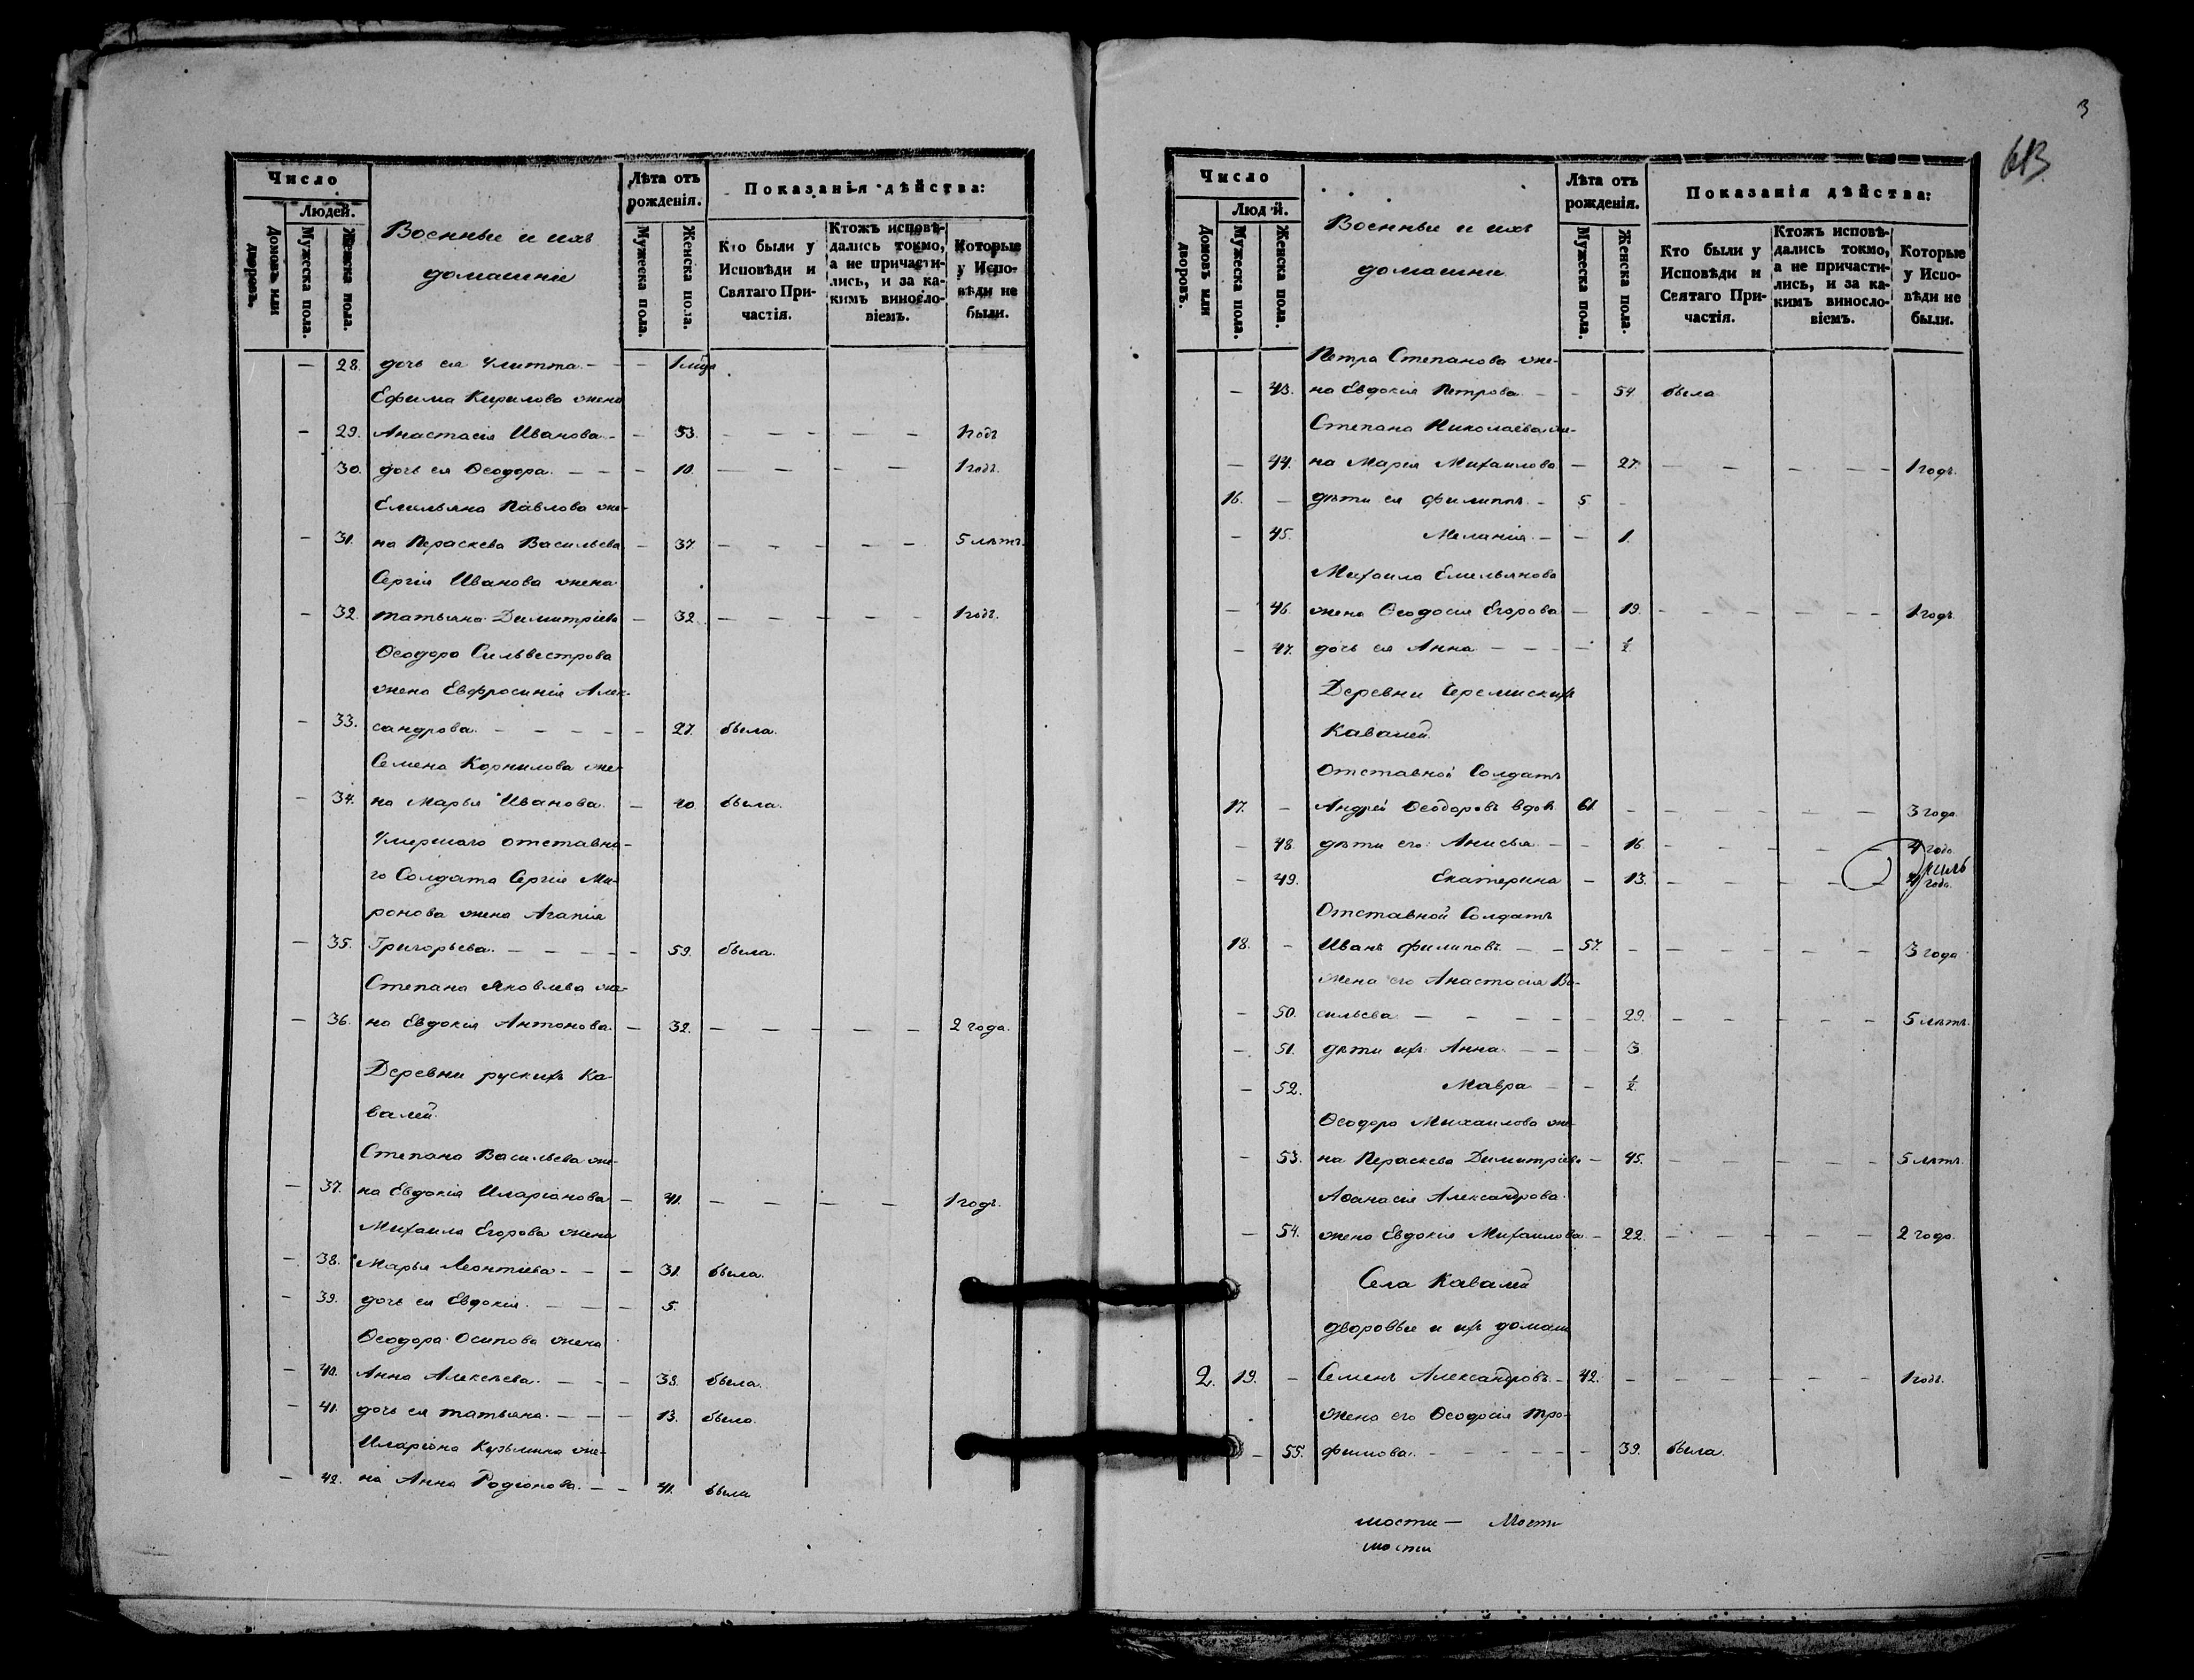 Число
Людей.
Домовъ или дворовъ.
Мужеска пола.
Женска пола.
Военные и ихъ
домашніе
Лѣта отъ
рожденія.
Мужеска пола.
Женска пола.
Показанія дѣйства:
Кто были у
Исповѣди и
Святаго При-
частія.
Ктожъ исповѣ-
дались токмо,
а не причасти-
лись, и за ка-
кимъ виносло-
віемъ.
Которые
у Испо-
вѣди не
были.
— 28. дочь ея Улитта — — 1
Ефима Кирилова жена
— 29. Анастасія Иванова — — 53. — — — — — 1 годъ
30. дочь ея Ѳеодора — — — 10. — — — — 1 годъ.
Емельяна Павлова же-
— 31. на Пераскева Васильева — 37 — — — — — 5 лѣтъ.
Сергія Иванова жена
— 32. татьяна Димитріева — 32. — — — — — 1 годъ.
Ѳеодора Сильвестрова
жена Евфросинія Алек-
— 33. сандрова. — — — — — 27. была.
Семена Корнилова же-
— 34. на Марья Иванова. — 40. была.
Умершаго отставна-
го Солдата Сергія Ми-
ронова жена Агапія
— 35. Григорьева. — — — — — 59. была.
Степана Яковлева же-
— 36. на Евдокия Антонова. — 32. — — — — — 2 года.
Деревни рускихъ Ка-
валей.
Степана Васильева же-
— 37. на Евдокія Иларіонова — 41. — — — — 1 годъ.
Михаила Егорова жена
— 38. Марья Леонтіева — — — 31. была.
— 39. дочь ея Евдокия. — — — 5.
Ѳеодора Осипова жена
— 40. Анна Алексѣева. — — — 38. была.
— 41. дочь ея татьяна. — — — 13. была.
Иларіона Кузьмина же-
— 42. на Анна Родіонова. — — 41. была
3
613
Число
Людей.
Домовъ или дворовъ.
Мужеска пола.
Женска пола.
Военные и ихъ
домашніе
Лѣта отъ
рожденія.
Мужеска пола.
Женска пола.
Показанія дѣйства:
Кто были у
Исповѣди и
Святаго При-
частія.
Ктожъ исповѣ-
дались токмо,
а не причасти-
лись, и за ка-
кимъ виносло-
віемъ.
Которые
у Испо-
вѣди не
были.
Петра Степанова же-
— 43. на Евдокия Петрова — — 54. была
Степана Николаева же-
— 44. на Мария Михаилова — 27. — — — — — 1 годъ.
16. — дѣти ея филиппъ. — 5 —
— 45. Меланія. — — 1.
Михаила Емельянова
— 46. жена Ѳеодосия Егорова — 19. — — — — — 1 годъ
— 47. дочь ея Анна — — — — ½
Деревни Черемискихъ
Кавалей.
Отставной Солдатъ
17. — Андрей Ѳеодоровъ вдовъ 61. — — — — — — 3 года.
— 48. дѣти его: Анисья. — — 16 — — — — — 4 года
— 49. Екатерина — 13. — — — — — года.
Отставной Солдатъ
18. — Иванъ филиповъ. — — 57. — — — — — — 3 года
Жена его Анастасія Ва-
— 50. сильева — — — — — 29. — — — — — 5 лѣтъ.
— 51. дѣти ихъ: Анна. — — — 3
— 52. Мавра — — ½
Ѳеодора Михаилова же-
— 53. на Пераскева Димитріева — 45. — — — — — 5 лѣтъ.
Аѳанасія Александрова
— 54. жена Евдокия Михаилова — 22. — — — — — 2 года.
Села Кавалей
дворовые и ихъ домаш
2. 19. — Семенъ Александровъ. — 42. — — — — — — 1 годъ.
жена его Ѳеодосія Тро-
— 55. фимова. — — — — — — 39. была.
мости —
мости